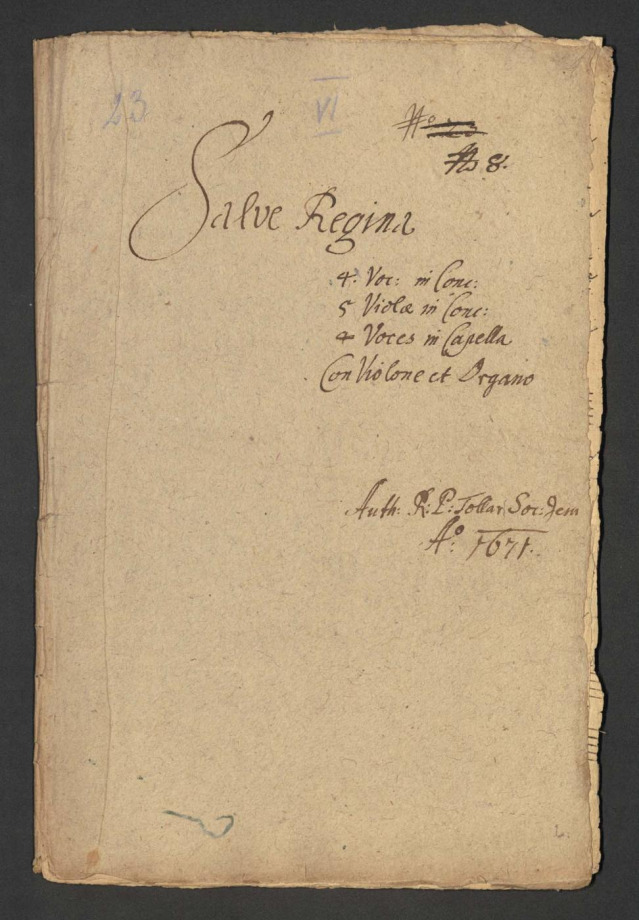 23
VI
No 23
No 8.
Salve Regina
4. Voc: in Conc:
5 Violæ in Conc:
4 Voces in Capella
Con Violone et Organo
Auth: R: P: Tollar Soc: Jem
Ao: 1671.